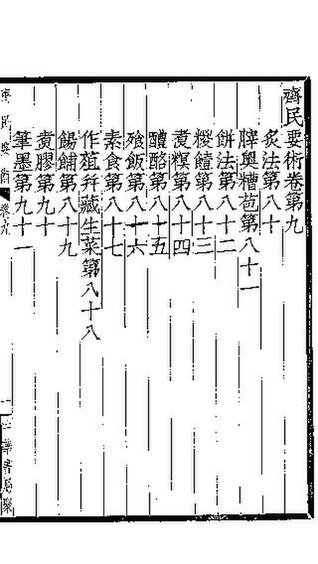 齊民要術卷第九
炙法第八十
䏶奧糟苞第八十一
餅法第八十二
糉䊦第八十三
煑𥻨第八十四
醴酪第八十五
飱飯第八十六
素食第八十七
作葅幷藏生菜第八十八
餳餔第八十九
煑膠第九十
筆墨第九十一
齊民要術 卷九
一 中華書局聚